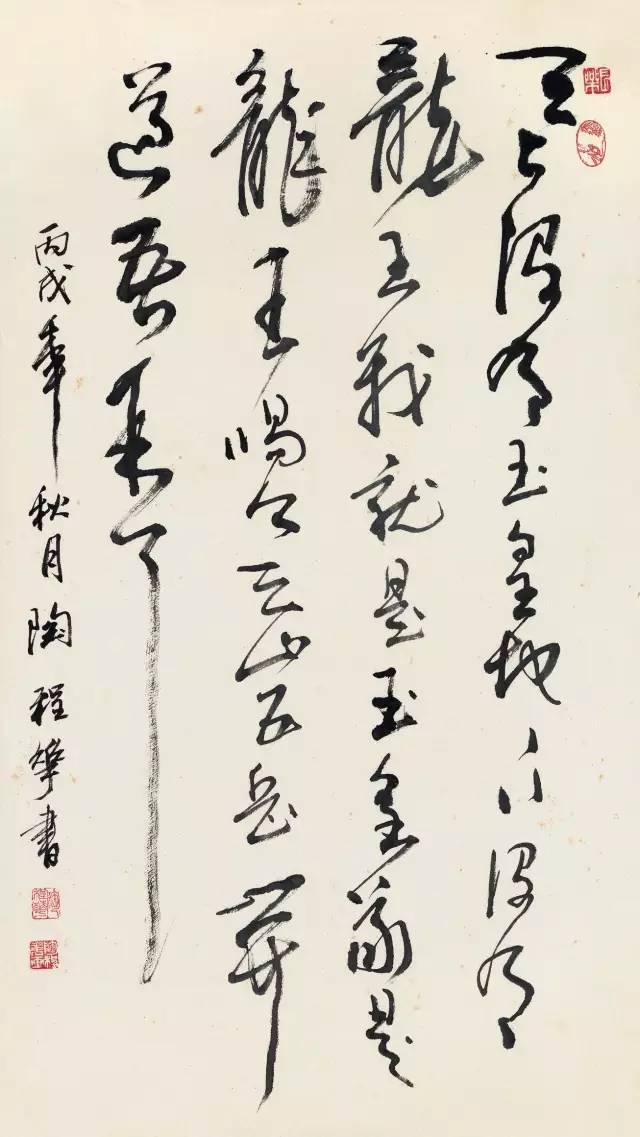 天上没有玉皇地下没有
龍王我就是玉皇我是
龍王喝令三山五岳開
道吾来了
丙戌年秋月陶程華書